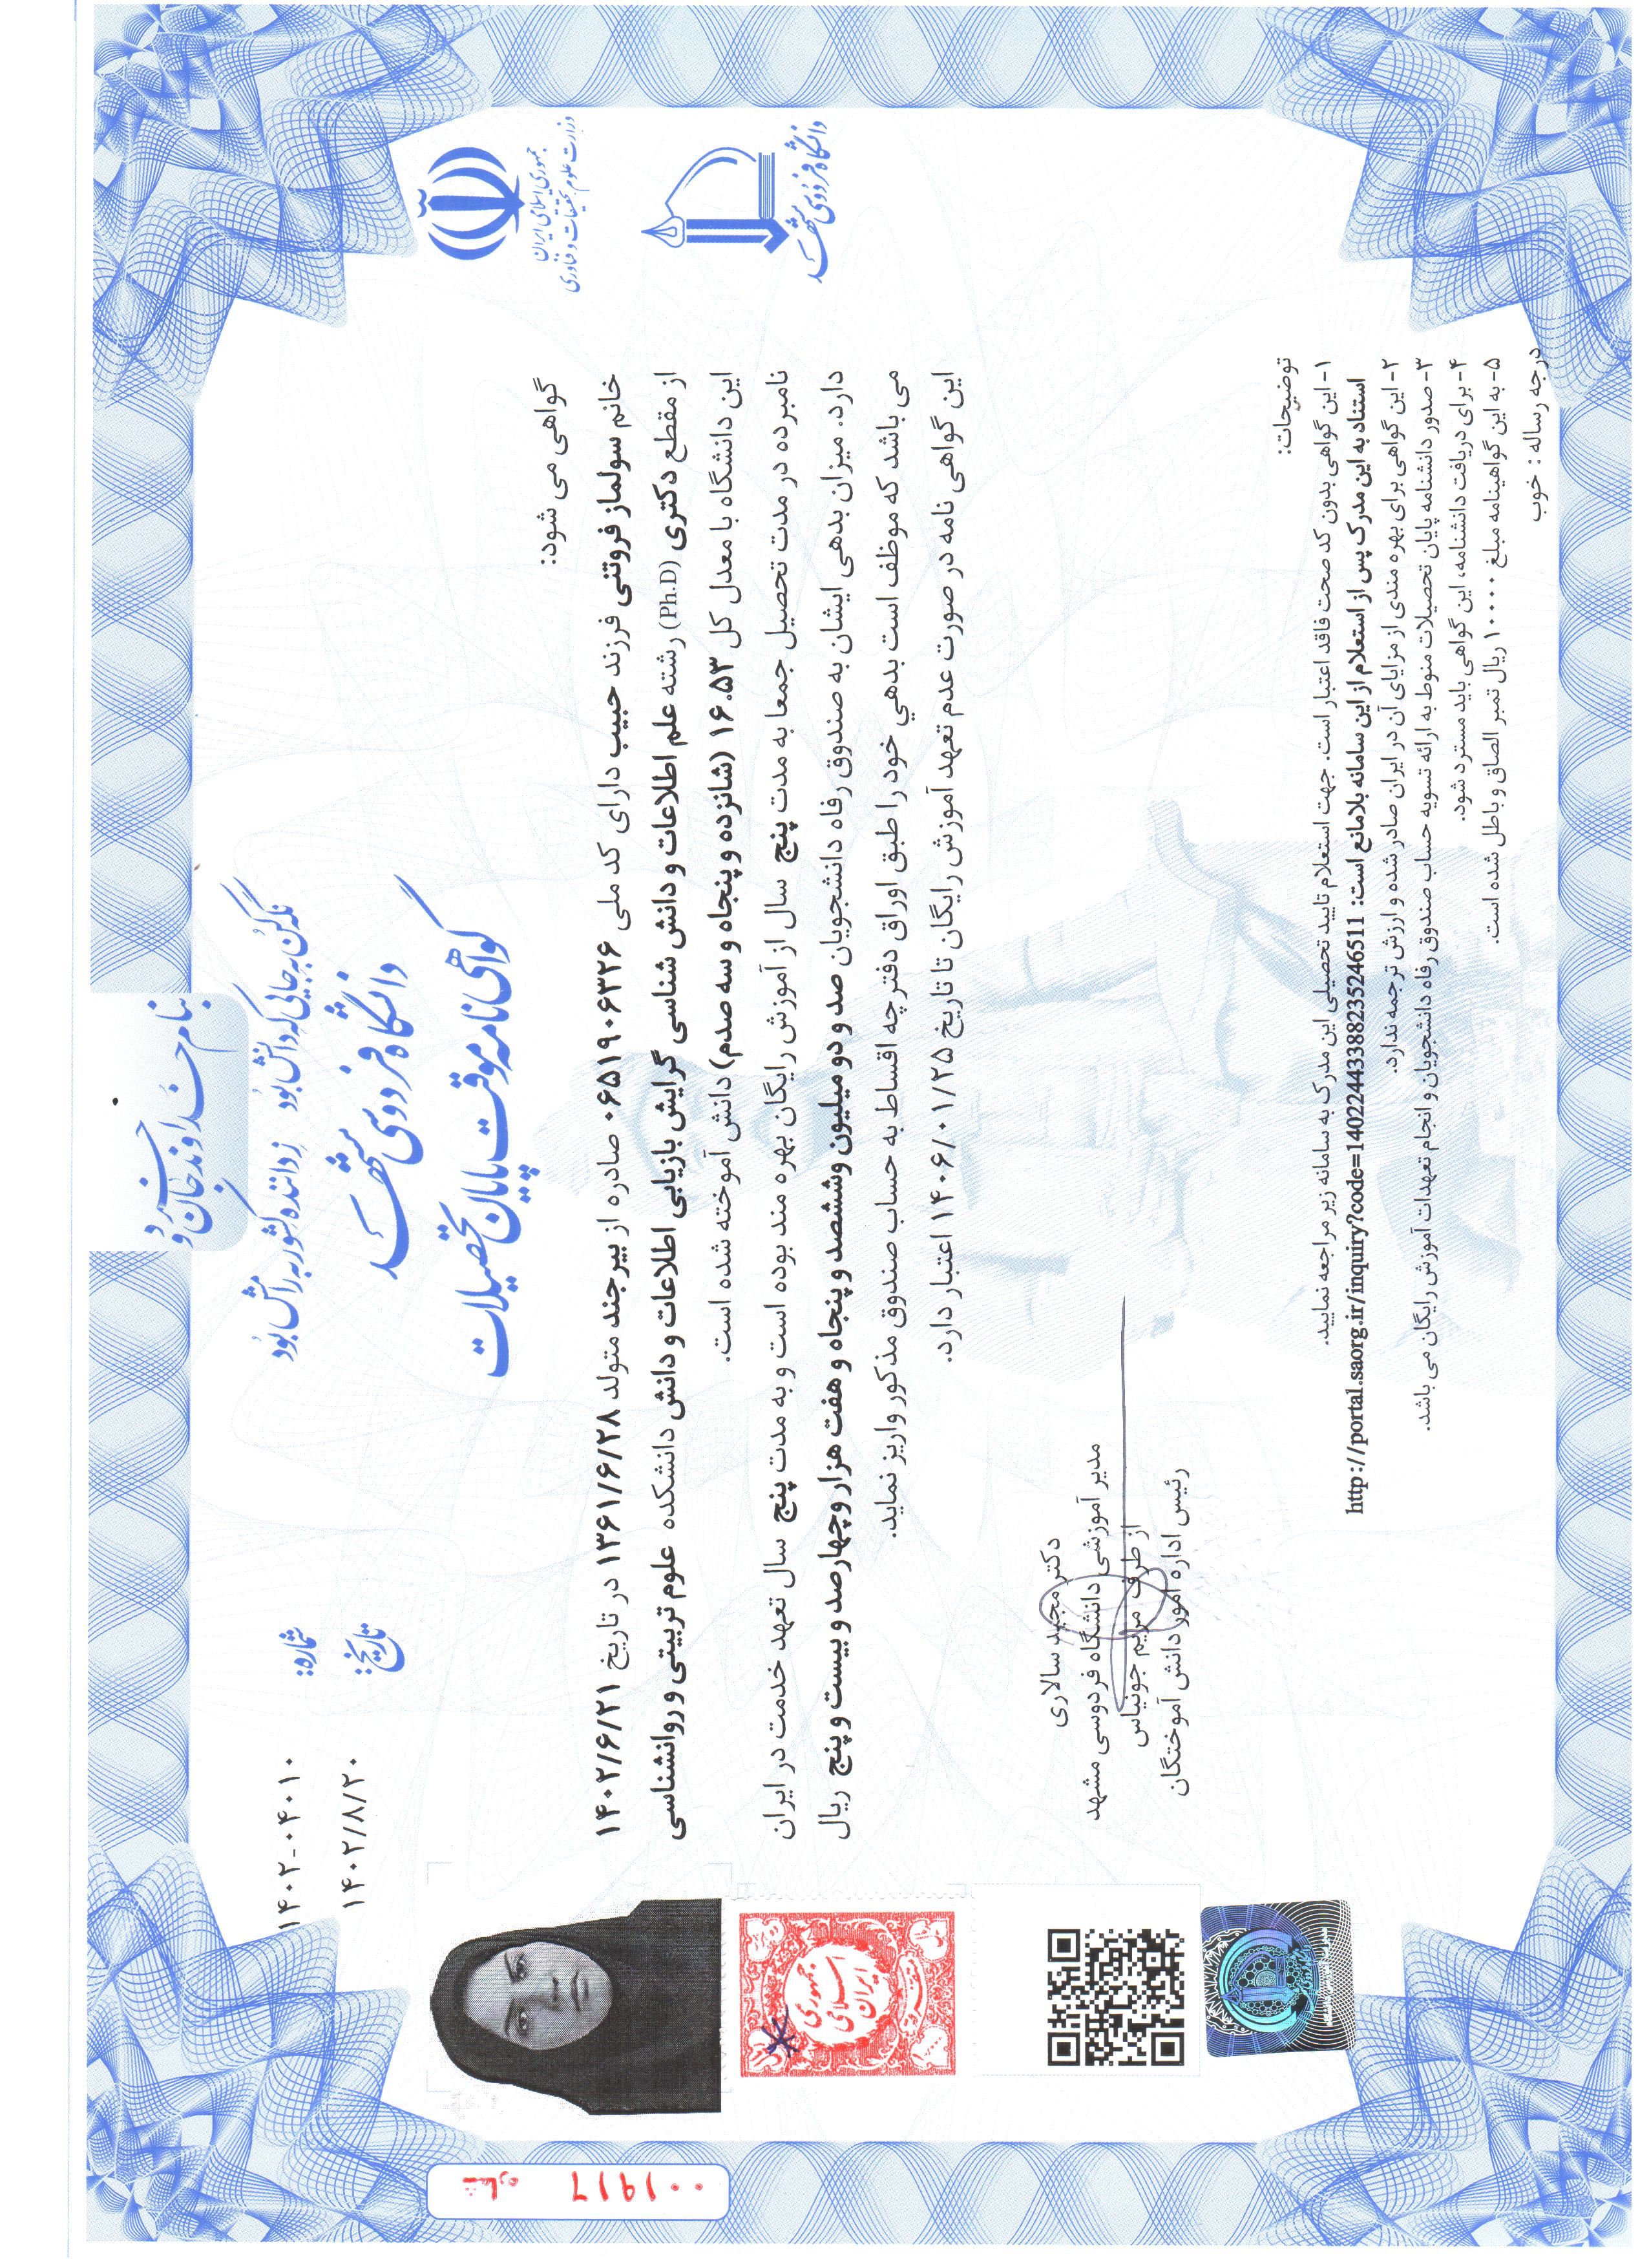 بنام خداوند جان و خرد
نگه کن به جایی که دانش بود ز داننده کشور به رامش بود
دانشگاه فردوسی مشهد
گواهی نامه موقت پایان تحصیلات
جمهوری اسلامی ایران
وزارت علوم، تحقیقات و فناوری
دانشگاه فردوسی مشهد
شماره: ۱۴۰۲-۰۴۰۱۰
تاریخ: ۱۴۰۲/۸/۲۰
گواهی می شود:
خانم سولماز فروتنی فرزند حبیب دارای کد ملی ۰۶۵۱۹۰۶۳۲۶ صادره از بیرجند متولد ۱۳۶۱/۶/۲۸ در تاریخ ۱۴۰۲/۶/۲۱
از مقطع دکتری (Ph.D) رشته علم اطلاعات و دانش شناسی گرایش بازیابی اطلاعات و دانش دانشکده علوم تربیتی و روانشناسی
این دانشگاه با معدل کل ۱۶.۵۳ (شانزده و پنجاه و سه صدم) دانش آموخته شده است.
نامبرده در مدت تحصیل جمعا به مدت پنج سال از آموزش رایگان بهره مند بوده است و به مدت پنج سال تعهد خدمت در ایران
دارد. میزان بدهی ایشان به صندوق رفاه دانشجویان صد و دو میلیون وششصد و پنجاه و هفت هزار وچهارصد و بیست و پنج ریال
می باشد که موظف است بدهي خود را طبق اوراق دفترچه اقساط به حساب صندوق مذکور واریز نماید.
این گواهی نامه در صورت عدم تعهد آموزش رایگان تا تاریخ ۱۴۰۶/۰۱/۲۵ اعتبار دارد.
دکتر مجید سالاری
مدیر آموزشی دانشگاه فردوسی مشهد
از طرف مریم جونیاس
رئیس اداره امور دانش آموختگان
توضیحات:
۱- این گواهی بدون کد صحت فاقد اعتبار است. جهت استعلام تایید تحصیلی این مدرک به سامانه زیر مراجعه نمایید.
استناد به این مدرک پس از استعلام از این سامانه بلامانع است: http://portal.saorg.ir/inquiry?code=14022443388235246511
۲- این گواهی برای بهره مندی از مزایای آن در ایران صادر شده و ارزش ترجمه ندارد.
۳- صدور دانشنامه پایان تحصیلات منوط به ارائه تسویه حساب صندوق رفاه دانشجویان و انجام تعهدات آموزش رایگان می باشد.
۴- برای دریافت دانشنامه، این گواهی باید مسترد شود.
۵- به این گواهینامه مبلغ ۱۰۰۰۰ ریال تمبر الصاق و باطل شده است.
درجه رساله : خوب
جمهوری
اسلامی
ایران
شماره ۰۰۱۹۱۶